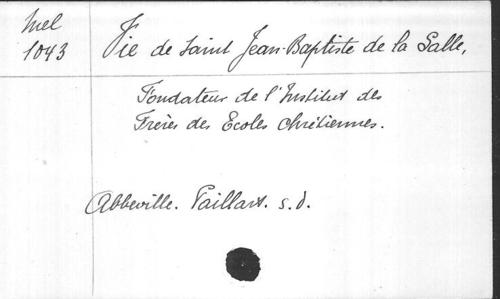 Mel
1043
Vie de Saint Jean-Baptiste de la Salle,
Fondateur de l'Institut des
Frères des Ecoles Chrétiennes.
Abbeville. Paillart. s.d.